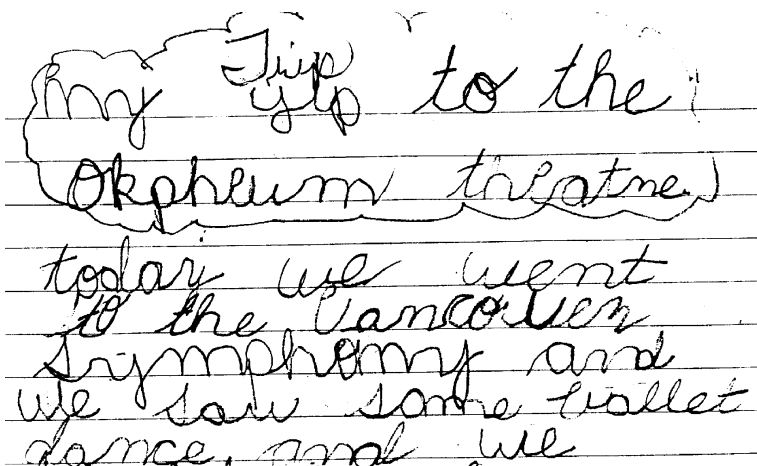 my Trip to the
Okpheum threatne
today we went
to the Vancouver
symphony and
we saw some ballet
dance, and we